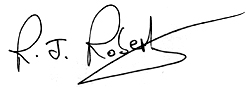 R. J. Robert